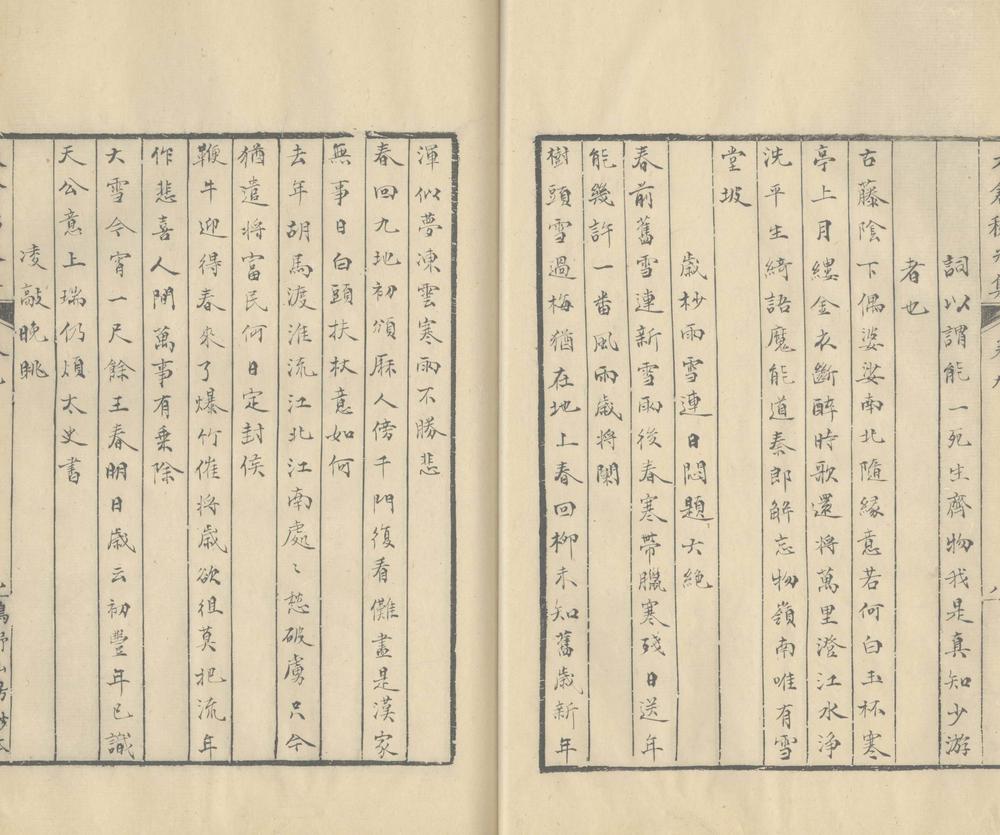 詞以謂能一死生齊物我是真知少游
者也
古藤陰下偶婆娑南北隨緣意若何白玉杯寒
亭上月縷金衣斷醉時歌還將萬里澄江水淨
洗平生綺語魔能道秦郎解忘物嶺南唯有雪
堂坡
歲杪雨雪連日悶題六絕
春前舊雪連新雪雨後春寒帶臘寒殘日送年
能幾許一番風雨歲將闌
樹頭雪過梅猶在地上春回柳未知舊歲新年
渾似夢凍雲寒雨不勝悲
春回九地初頒厤人傍千門復看儺盡是漢家
無事日白頭扶杖意如何
去年胡馬渡淮流江北江南處〻愁破虜只今
猶遣將富民何日定封侯
鞭牛迎得春來了爆竹催將歲欲徂莫把流年
作悲喜人間萬事有乗除
大雪今宵一尺餘王春明日歲云初豐年已識
天公意上瑞仍煩太史書
凌敲晚眺